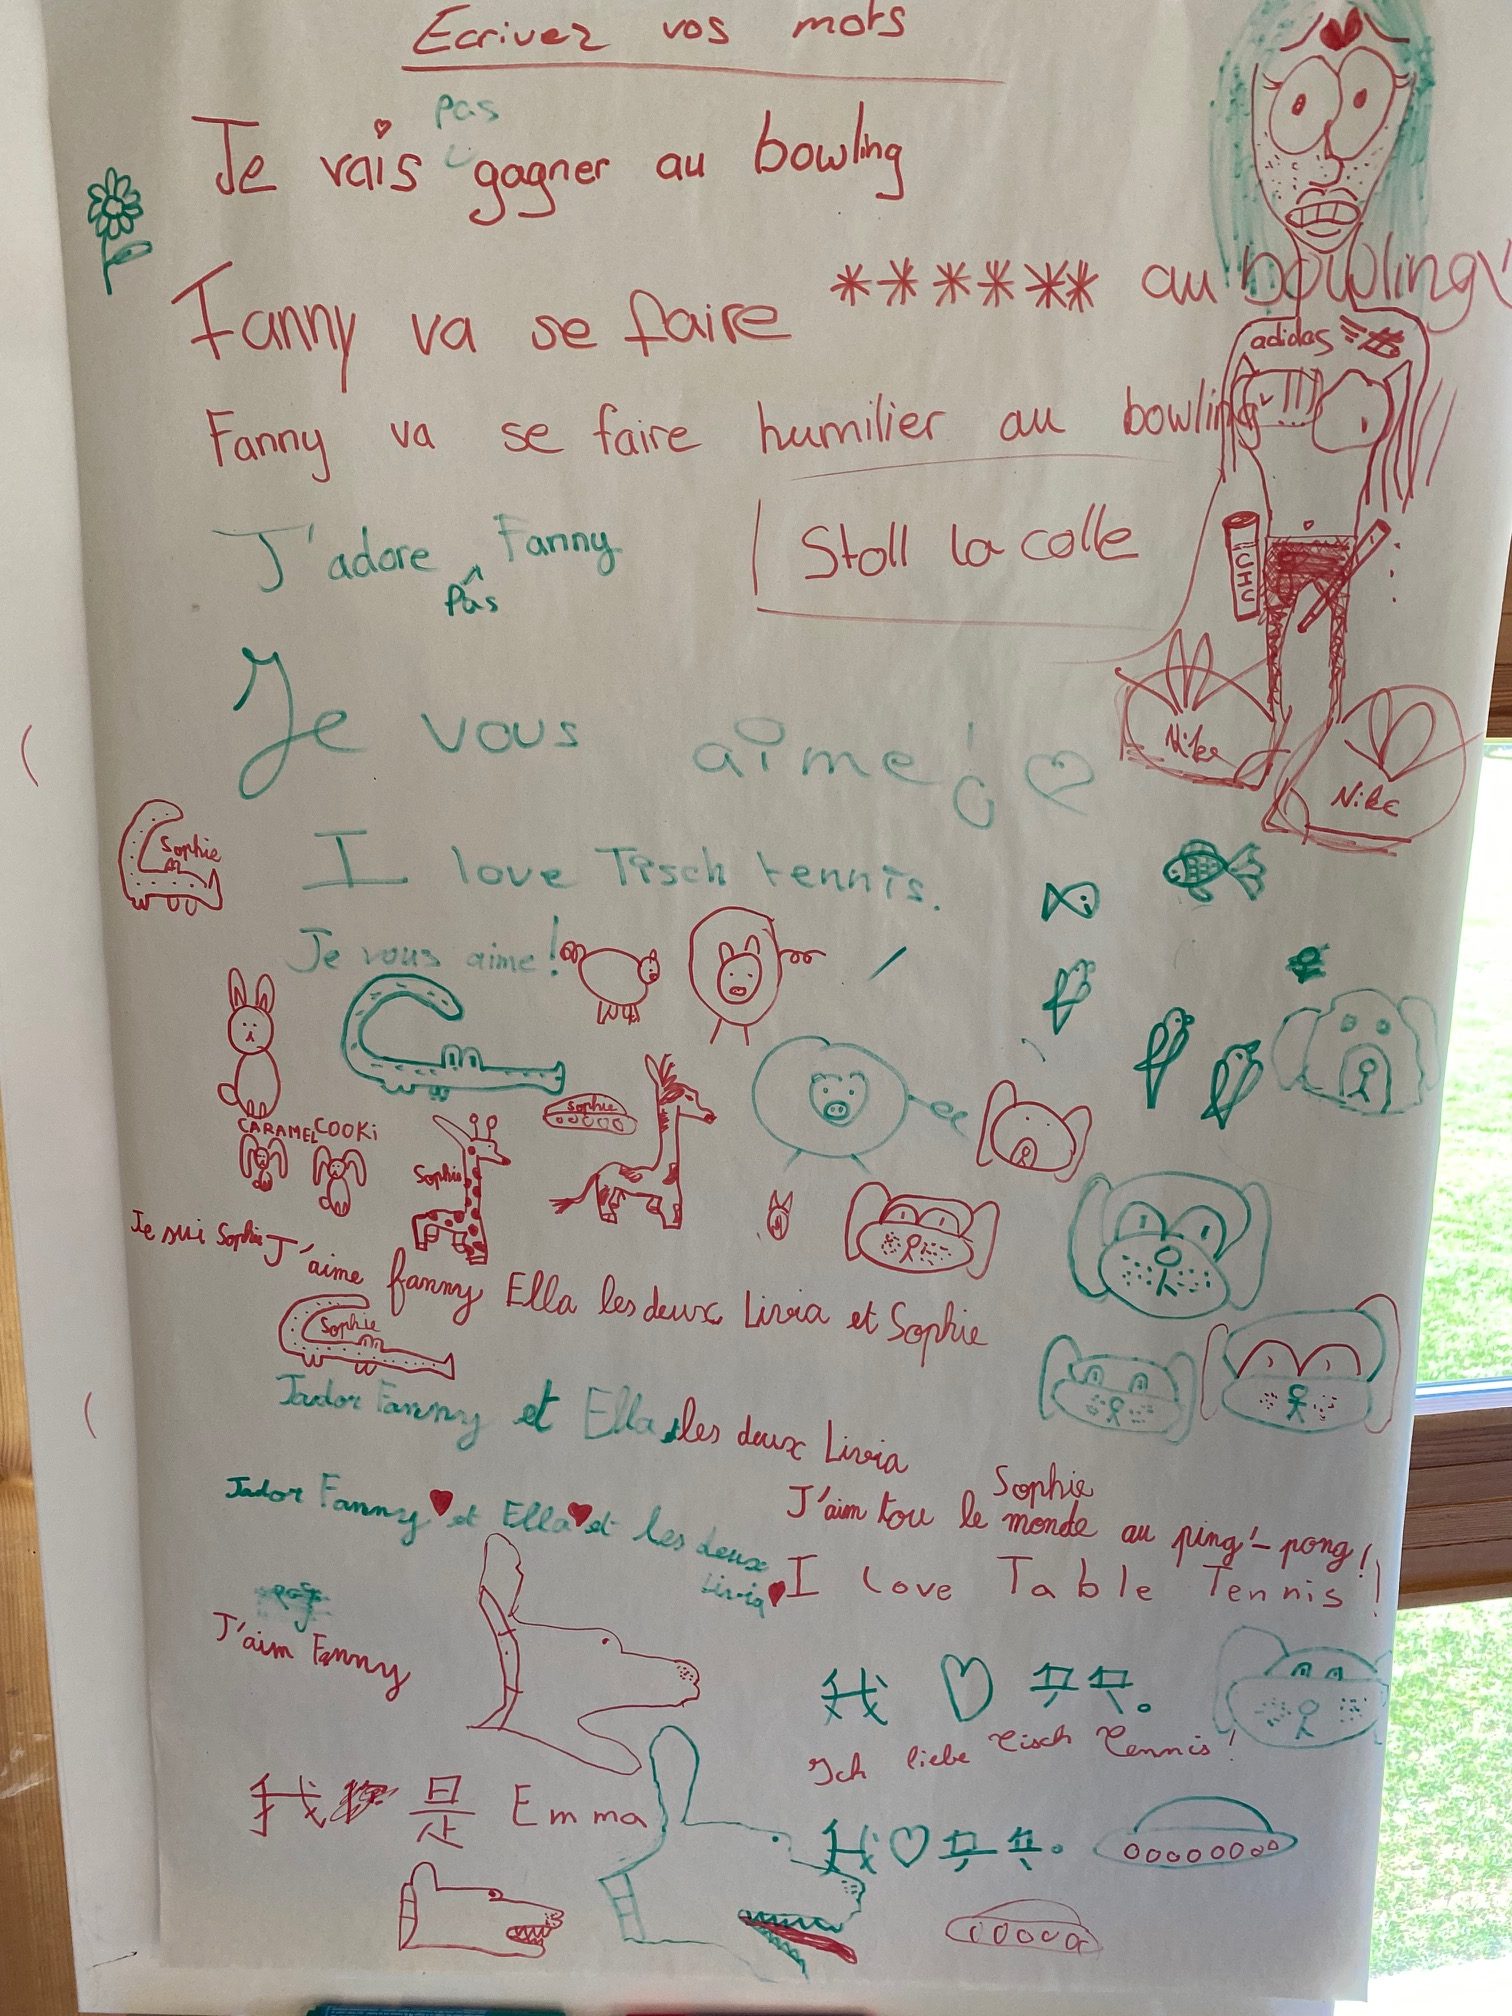 Ecrivez vos mots
pas
Je vais gagner au bowling
Fanny va se faire ****** au bowling
adidas
Fanny va se faire humilier au bowling !!!
J'adore Fanny
pas
Stoll la colle
CHU
Je vous aime !
Nike
Nike
Sophie
I love Tisch tennis.
Je vous aime !
Sophie
CARAMEL COOKi
Sophie
Je sui Sophie J'aime fanny Ella les deux Livia et Sophie
Sophie
Jador Fannny et Ella les deux Livia
Sophie
Jador Fanny ♥ et Ella ♥ et les deux Livia ♥
J'aim tou le monde au ping'-pong !
I love Table Tennis !
pas
J'aim Fanny
我 ♡ 乒乓。
Ich liebe Tisch Tennis !
我 是 Emma
我 ♡ 乒乓。